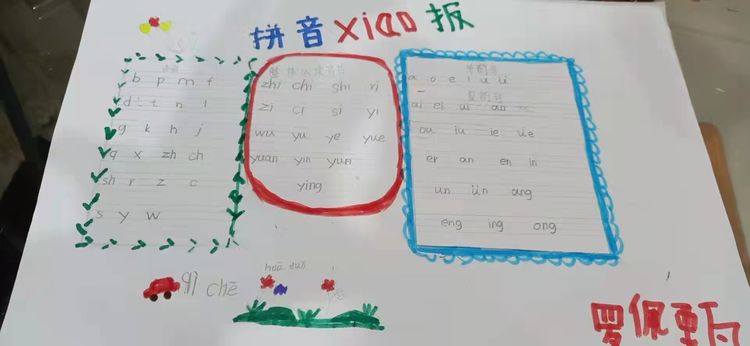 拼音xiao报
声母
b p m f
d t n l
g k h j
q x zh ch
sh r z c
s y w
整体认读音节
zhi chi shi ri
zi ci si yi
wu yu ye yue
yuan yin yun
ying
单韵母
a o e i u ü
复韵母
ai ei ui ao
ou iu ie üe
er an en in
un ün ang
eng ing ong
huā duǒ
qì chē
罗佩